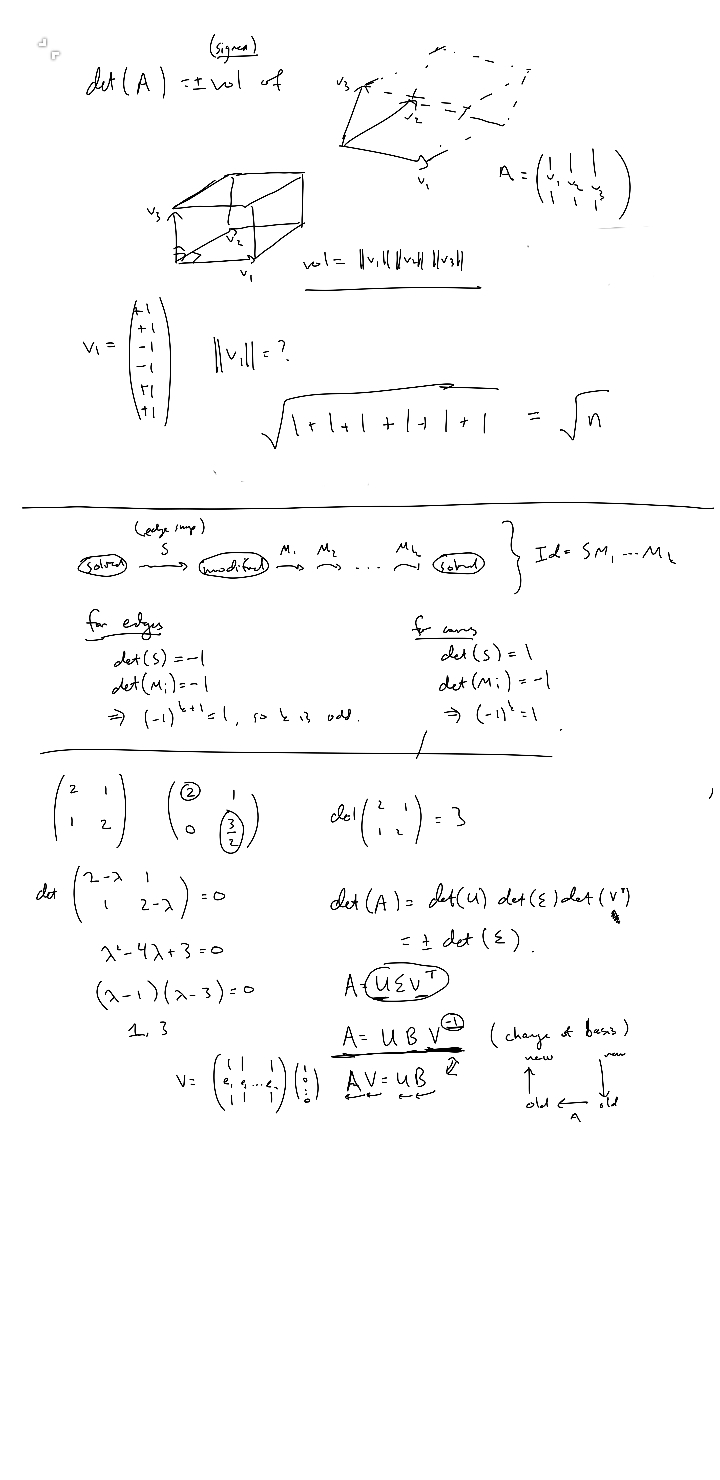 (signed)
det(A) = ± vol of
v₃
v₂
v₁
A = ( v₁ v₂ v₃ )
v₃
v₂
v₁
vol = ||v₁|| ||v₂|| ||v₃||
v₁ = ( +1 +1 -1 -1 +1 +1 )
||v₁|| = ?
√(1+1+1+1+1+1) = √n
(edge swap)
S M₁ M₂ Mₖ
solved → modified → → ... → solved } Id = SM₁ ... Mₖ
for edges
det(S) = -1
det(Mᵢ) = -1
⇒ (-1)ᵏ⁺¹ = 1, so k is odd.
for
det(S) = 1
det(Mᵢ) = -1
⇒ (-1)ᵏ = 1
( 2 1 ; 1 2 ) ( 2 1 ; 0 3/2 ) det ( 2 1 ; 1 2 ) = 3
det ( 2-λ 1 ; 1 2-λ ) = 0
λ² - 4λ + 3 = 0
(λ-1)(λ-3) = 0
1, 3
det(A) = det(U) det(Σ) det(Vᵀ)
= ± det(Σ).
A = UΣVᵀ
A = U B V⁻¹ (change of basis)
V = ( e₁ e₂ ... eₙ ) ( 1 0 ⋮ 0 ) AV = UB
new new
old ← old
A